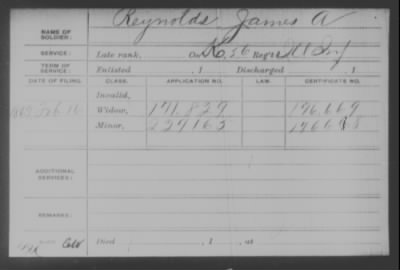 NAME OF SOLDIER: Reynolds James A
SERVICE: Late rank, Co. K, 56 Reg't Ill Inf
TERM OF SERVICE: Enlisted , 1 Discharged , 1
DATE OF FILING. CLASS. APPLICATION NO. LAW. CERTIFICATE NO.
Invalid,
1869 Feb 16 Widow, 171.829 176.669
Minor, 229165
ADDITIONAL SERVICES:
REMARKS:
Died , 1 , at